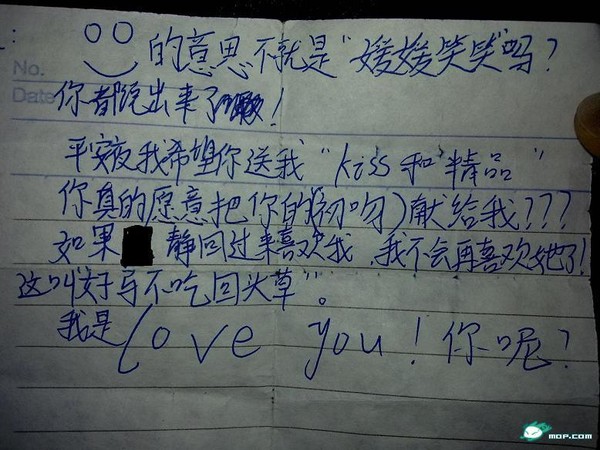 No.
Date
的意思不就是"媛媛笑笑"吗?
你都说出来了啊!
平安夜我希望你送我"kiss和精品"
你真的愿意把你的(初吻)献给我???
如果 静回过来喜欢我 我不会再喜欢她了!
这叫"好马不吃回头草"。
我是love you!你呢?
mop.com